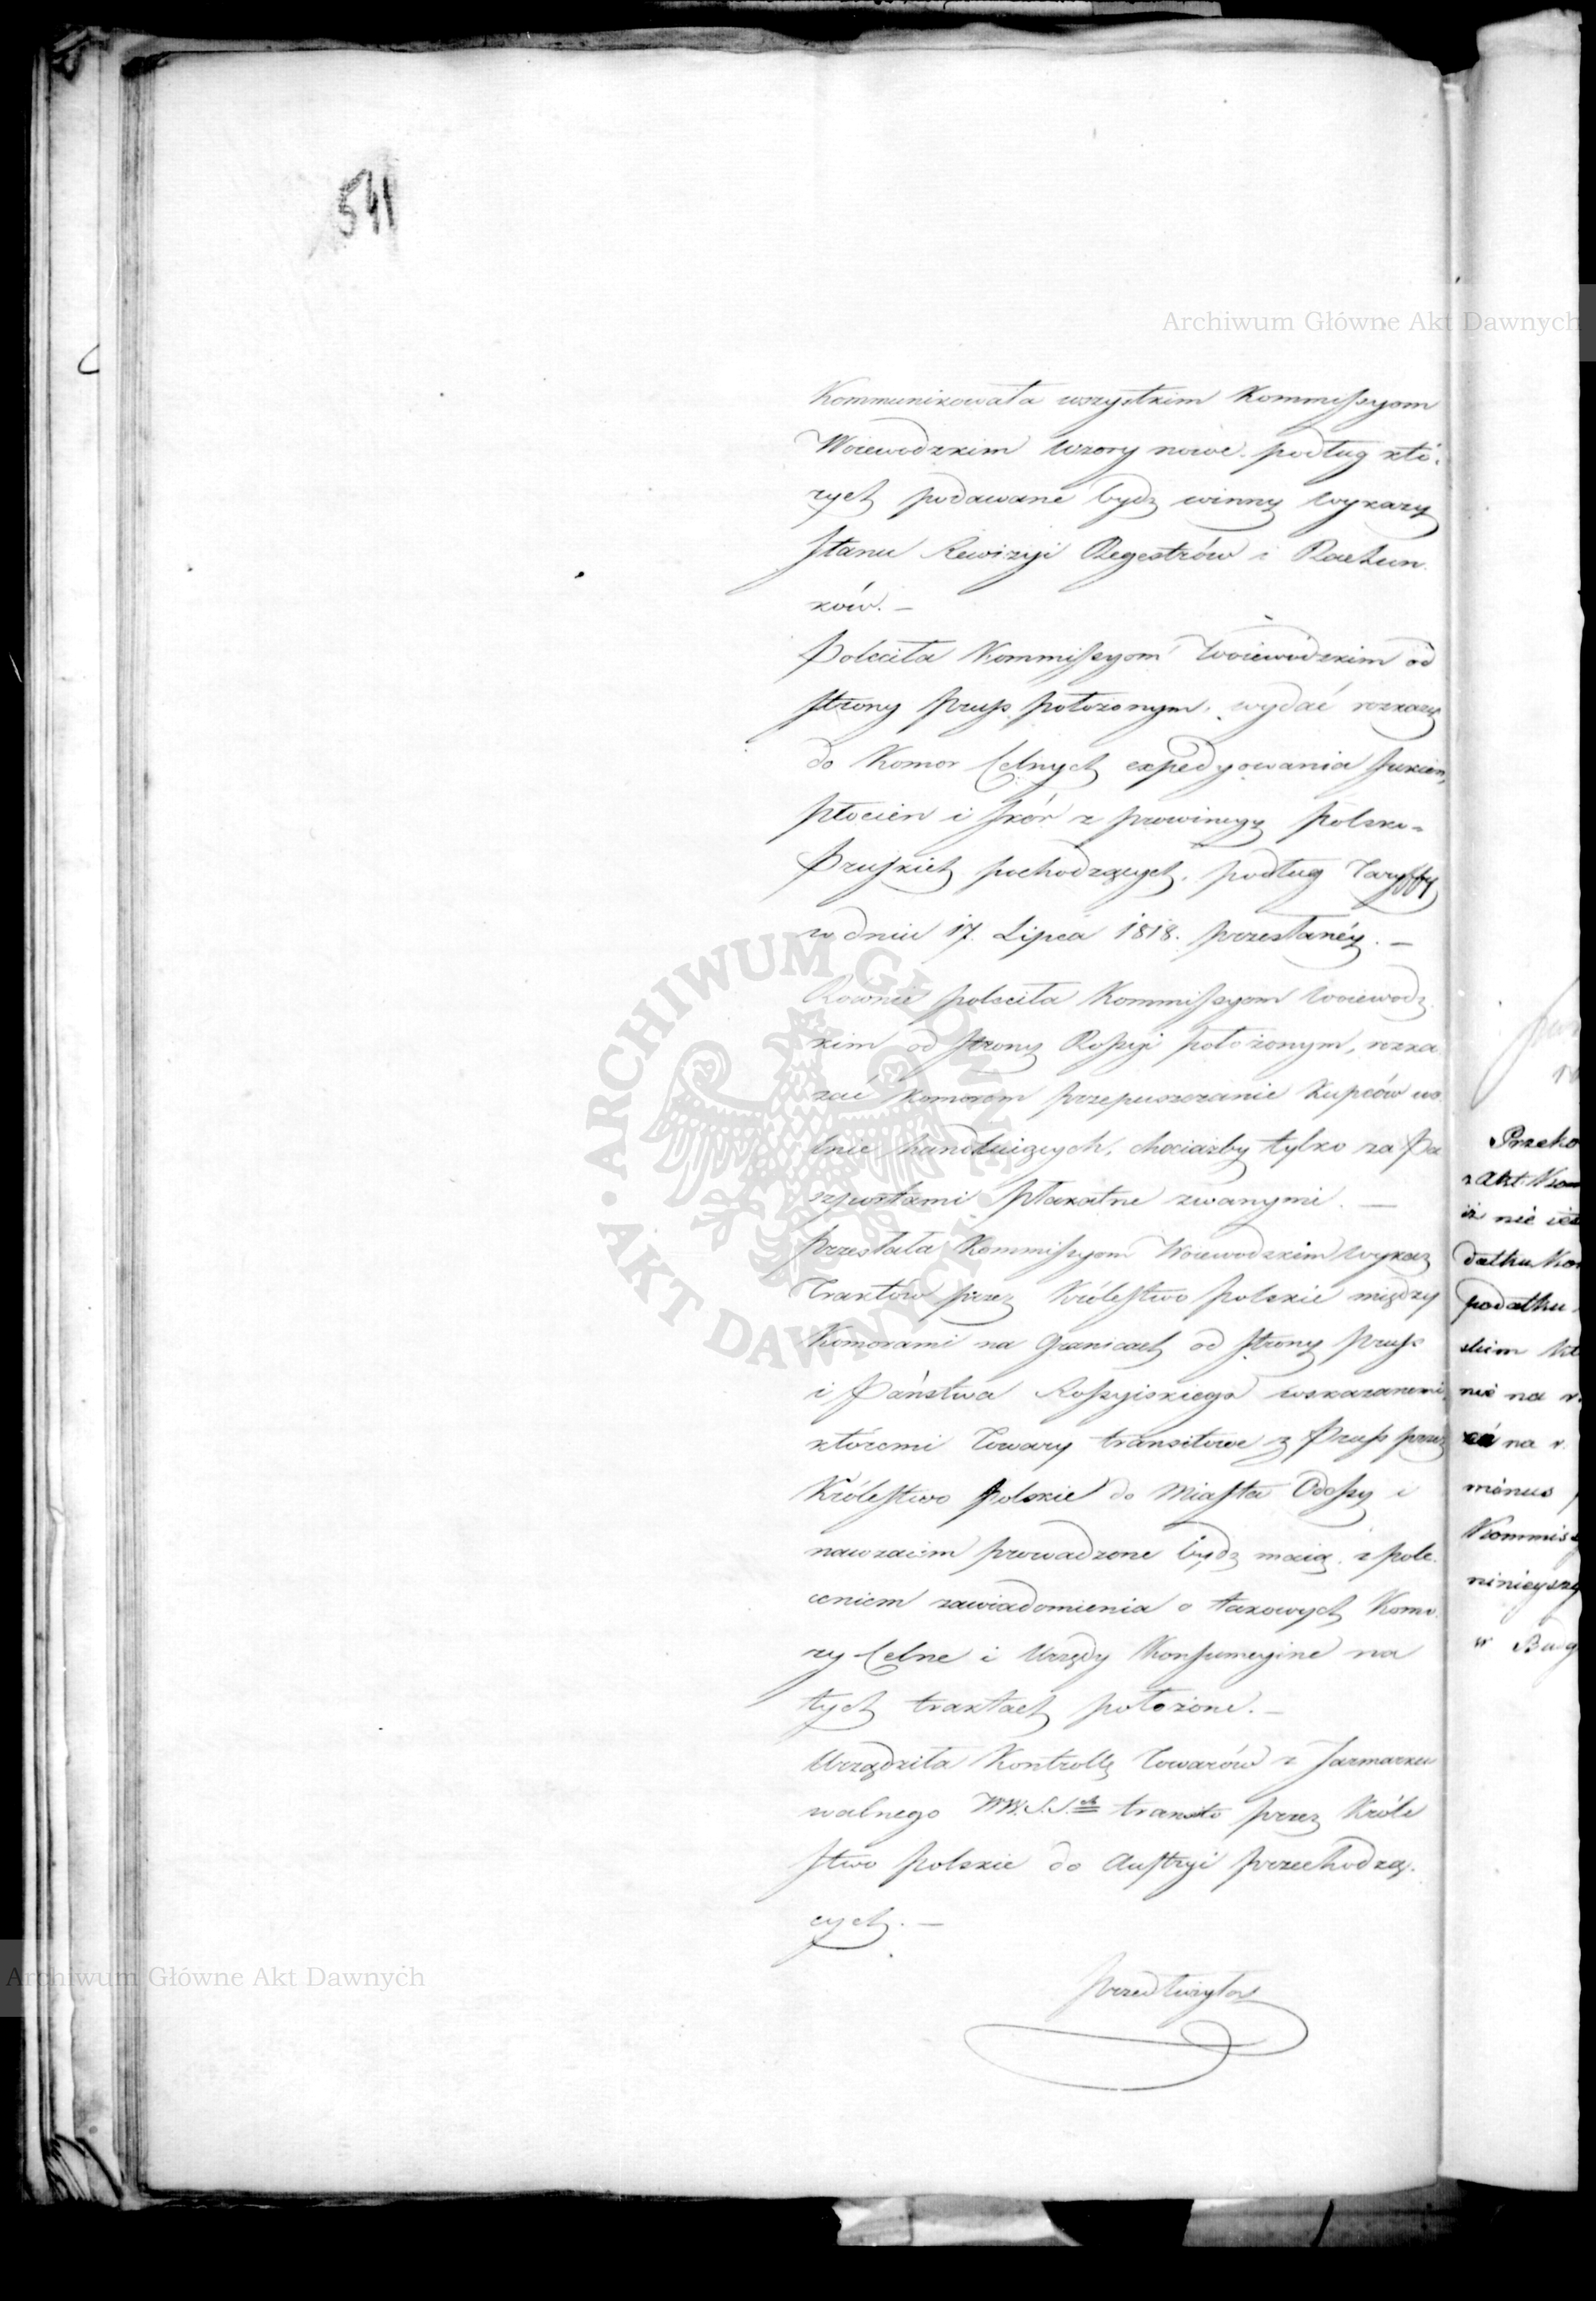 541
Archiwum Główne Akt Dawnych
Kommunikowała wszystkim Kommissyom
Woiewodzkim wzory nowe podług któ-
rych podawane bydź winny wykazy
stanu Rewizyi Regestrów i Rachun-
ków. —
Poleciła Kommissyom Woiewódzkim od
strony Pruss położonym, wydać rozkazy
do Komor Celnych expedyowania sukien,
płocien i skór z prowincyy Polsko-
Pruskich pochodzących, podług Taryffy
w dniu 17. Lipca 1818. przesłanéy. —
Równie poleciła Kommissyom Woiewodz-
kim od strony Rossyi położonym, rozka-
zać komorom przepuszczanie Kupców wo-
lnie handluiących, chociażby tylko za Pa-
szportami Plakatne zwanymi. —
Przesłała Kommissyom Woiewodzkim wykaz
Traktów przez Królestwo Polskie między
Komorami na Granicach od strony Pruss
i Państwa Rossyiskiego wskazanemi,
któremi Towary transitowe z Pruss przez
Królestwo Polskie do Miasta Odessy i
nawzaiem prowadzone bydź maią, z pole-
ceniem zawiadomienia o takowych Komo-
ry Celne i Urzędy Konsumcyine na
tych traktach położone. —
Urządziła Kontrollę Towarów z Jarmarku
walnego WW.S.S.ch transito przez Króle-
stwo Polskie do Austryi przechodzą-
cych. —
ARCHIWUM GŁÓWNE AKT DAWNYCH
Archiwum Główne Akt Dawnych
Przeko
z Akt Kom
iż nie ies
datku Kon
podatku
skim
nie na r.
na r.
minus
Kommiss
niniejszy
w Budg